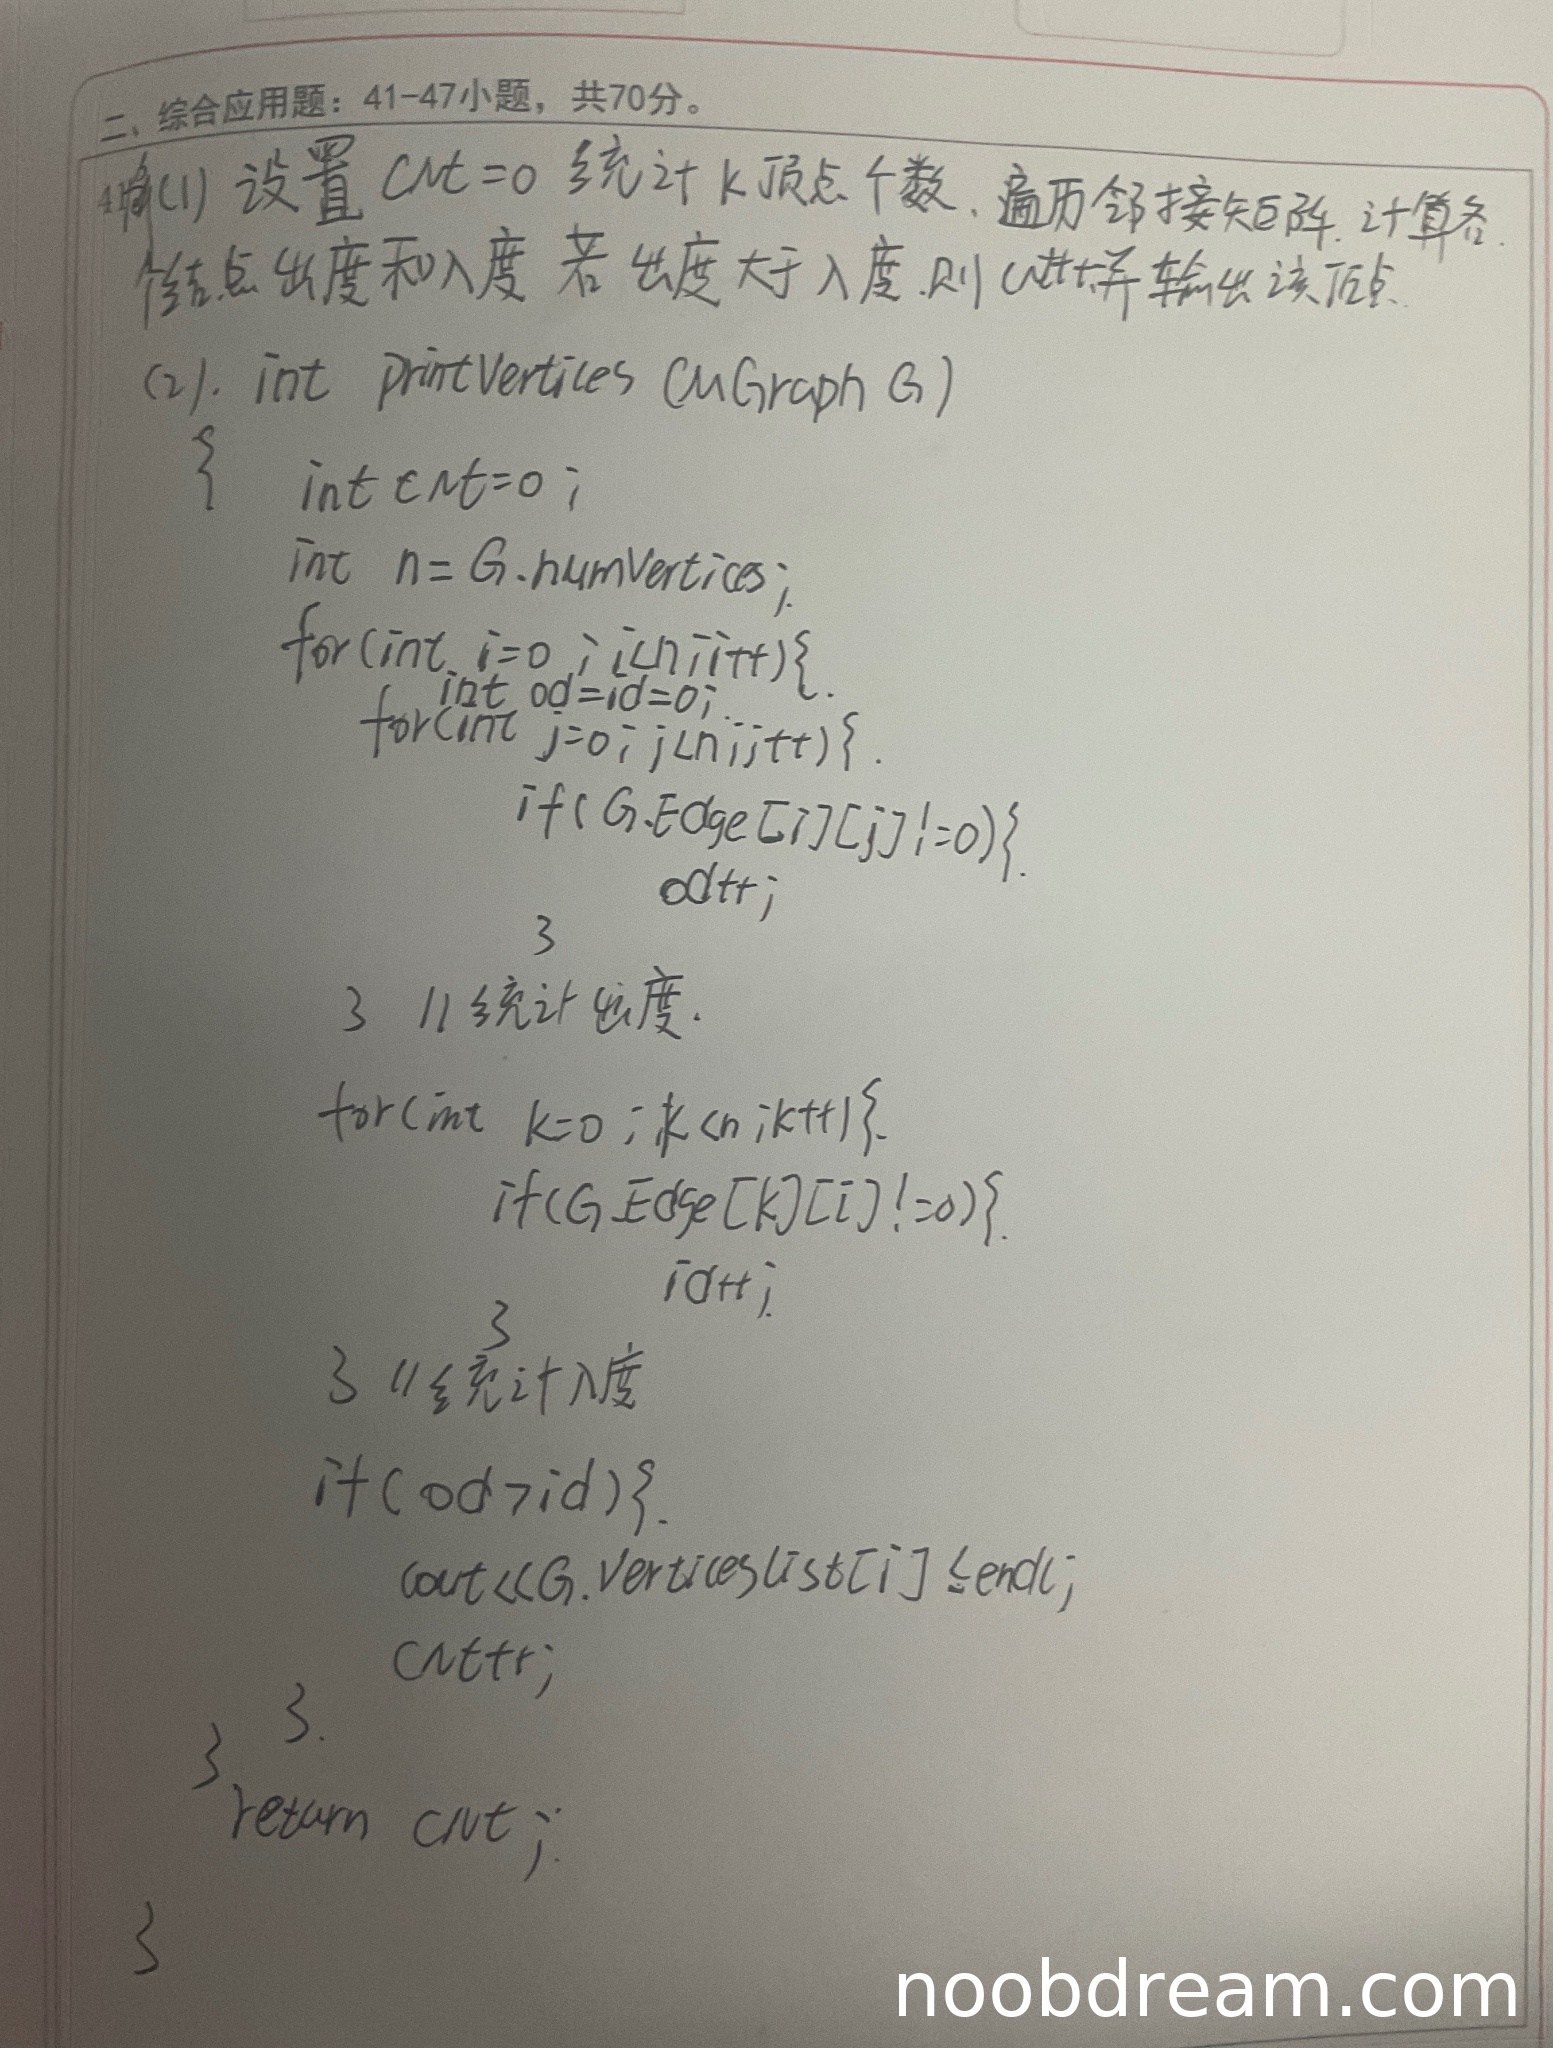 二、综合应用题：41-47小题，共70分。
(1) 设置 cnt=0 统计 k顶点个数、遍历邻接矩阵.计算各.
个结点出度和入度 若出度大于入度.则 cnt++并输出该顶点.
(2). int printVertices (MGraph G)
{ int cnt=0;
int n=G.numVertices;
for(int i=0;i<n;i++){
int od=id=0;
for(int j=0;j<n;j++){
if(G.Edge[i][j]!=0){
od++;
}
} //统计出度.
for(int k=0;k<n;k++){
if(G.Edge[k][i]!=0){
id++;
}
} //统计入度
if(od>id){
cout<<G.Verticeslist[i]<<endl;
cnt++;
}
}
return cnt;
}
noobdream.com